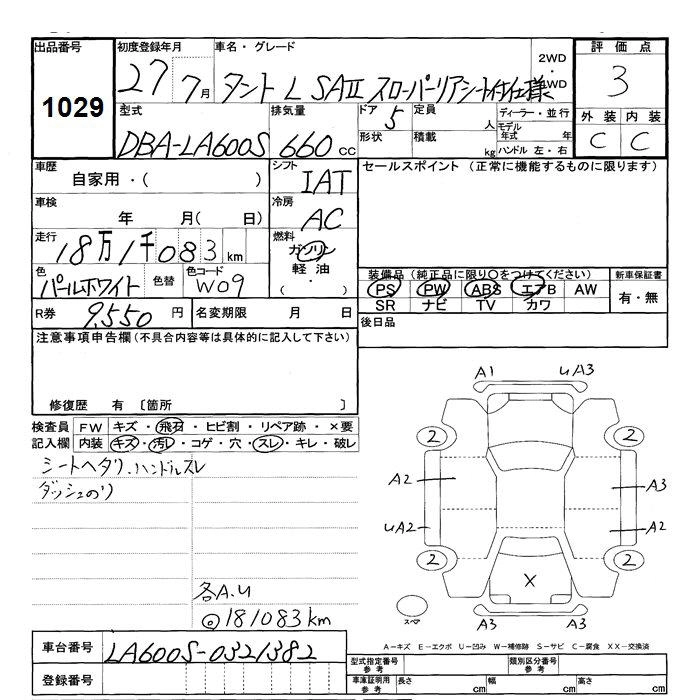 出品番号 初度登録年月 車名・グレード 2WD 評価点
1029 27 7月 タント L SAⅡ スローパーリアシート付仕様 4WD 3
型式 排気量 ドア 定員 ディーラー・並行 外装 内装
DBA-LA600S 660cc 5 人 モデル年式 年 C C
形状 積載 kg ハンドル 左・右
車歴 シフト セールスポイント(正常に機能するものに限ります)
自家用・( ) IAT
車検 冷房
年 月( 日) AC
走行 燃料
18万1千083km ガソリン
軽油
( ・ )
色 色替 色コード 装備品(純正品に限り○をつけてください) 新車保証書
パールホワイト W09 PS PW ABS エアB AW 有・無
SR ナビ TV カワ
R券 9,550円 名変期限 月 日 後日品
注意事項申告欄(不具合内容等は具体的に記入して下さい)
修復歴 有 〔箇所 〕
検査員 FW キズ・飛石・ヒビ割・リペア跡・×要
記入欄 内装 キズ・汚レ・コゲ・穴・スレ・キレ・破レ
シートヘタリ、ハンドルスレ
ダッシュのり
各A.U
◎181083km
A1 uA3
2 2
A2 A3
uA2 A2
2 2
X
スペア A3 A3
A-キズ E-エクボ U-凹み W-補修跡 S-サビ C-腐食 XX-交換済
車台番号 LA600S-0321382
登録番号
型式指定番号 参考 類別区分番号 参考
車庫証明用 参考 長さ cm 幅 cm 高さ cm